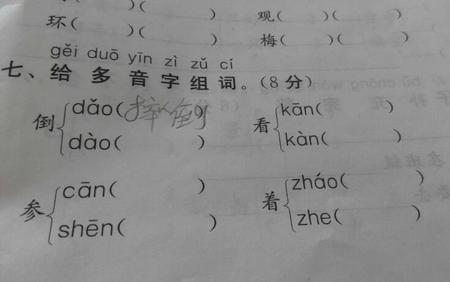 环(    )(    ) 观(    )(    )
(    )(    ) 梅(    )(    )
gěi duō yīn zì zǔ cí
七、给多音字组词。(8分)
倒 dǎo(摔倒) 看 kān(    )
dào(    ) kàn(    )
参 cān(    ) 着 zháo(    )
shēn(    ) zhe(    )